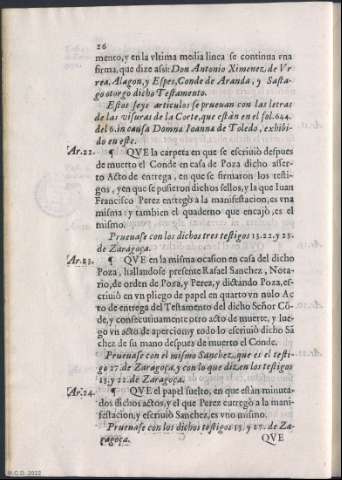 26
mento, y en la vltima media linea se continua vna
firma, que dize assi: Don Antonio Ximenez, de Vr
rea, Alagon, y Espes, Conde de Aranda, y Sasta-
go otorgo dicho Testamento.
Estos seys articulos se prueuan con las letras
de las visuras de la Corte, que están en el fol. 644.
del 6. in causa Domna Ioanna de Toledo, exhibi-
do en este.
Ar. 22. ¶ QVE la carpeta en que se escriuiò despues
de muerto el Conde en casa de Poza dicho asser-
to Acto de entrega, en que se firmaron los testi-
gos, y en que se pusieron dichos sellos, y la que Iuan
Francisco Perez entregò a la manifestacion, es vna
misma: y tambien el quaderno que encajò, es el
mismo.
Prueuase con los dichos tres testigos 15. 22. y 25.
de Zaragoça.
Ar. 23. ¶ QVE en la misma ocasion en casa del dicho
Poza, hallandose presente Rafael Sanchez, Nota-
rio, de orden de Poza, y Perez, y dictando Poza, es-
criuiò en vn pliego de papel en quarto vn nulo Ac
to de entrega del Testamento del dicho Señor Cõ-
de, y consecutiuamente otro acto de muerte, y lue-
go vn acto de apercion; y todo lo escriuiò dicho Sã
chez de su mano despues de muerto el Conde.
Prueuase con el mismo Sanchez, que es el testi-
go 27. de Zaragoça, y con lo que dizen los testigos
15. y 22. de Zaragoça.
Ar. 24. ¶ QVE el papel suelto, en que están minuta-
dos dichos actos, y el que Perez entregò a la mani-
festacion, y escriuiò Sanchez, es vno mismo.
Prueuase con los dichos testigos 15. y 27. de Za-
ragoça. QVE